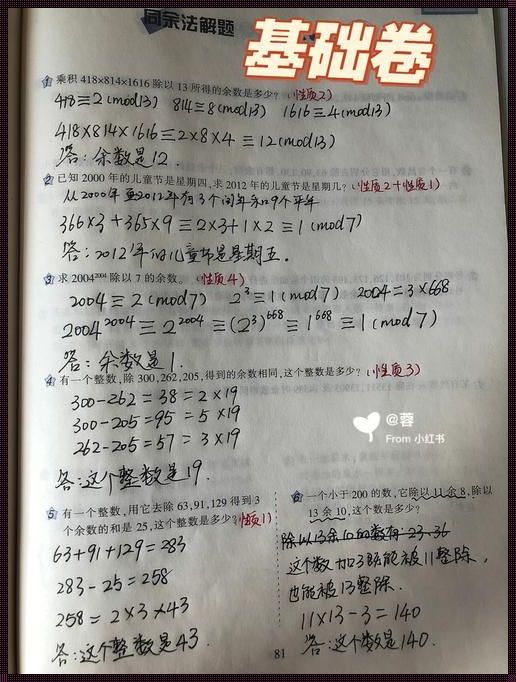 同余法解题
基础卷
1 乘积 418×814×1616 除以 13 所得的余数是多少?(性质2)
418≡2(mod13) 814≡8(mod13) 1616≡4(mod13)
418×814×1616≡2×8×4≡12(mod13)
答:余数是12.
2 已知 2000 年的儿童节是星期四,求 2012 年的儿童节是星期几?(性质2+性质1)
从2000年至2012年有3个闰年和9个平年
366×3+365×9≡2×3+1×2≡1(mod7)
答:2012年的儿童节是星期五.
3 求 2004²⁰⁰⁴ 除以 7 的余数。(性质4)
2004≡2(mod7) 2³≡1(mod7) 2004=3×668
2004²⁰⁰⁴≡2²⁰⁰⁴≡(2³)⁶⁶⁸≡1⁶⁶⁸≡1(mod7)
答:余数是1.
4 有一个整数,除 300,262,205,得到的余数相同,这个整数是多少?(性质3)
300-262=38=2×19
300-205=95=5×19
262-205=57=3×19
答:这个整数是19.
@蓉
From 小红书
5 有一个整数,用它去除 63,91,129 得到 3
个余数的和是 25,这个整数是多少?(性质1)
63+91+129=283
283-25=258
258=2×3×43
答:这个整数是43.
6 一个小于 200 的数,它除以 11 余 8,除以
13 余 10,这个数是多少?
除以13余10的数有:23.36
这个数加3既能被11整除,
也能被13整除.
11×13-3=140
答:这个数是140.
81